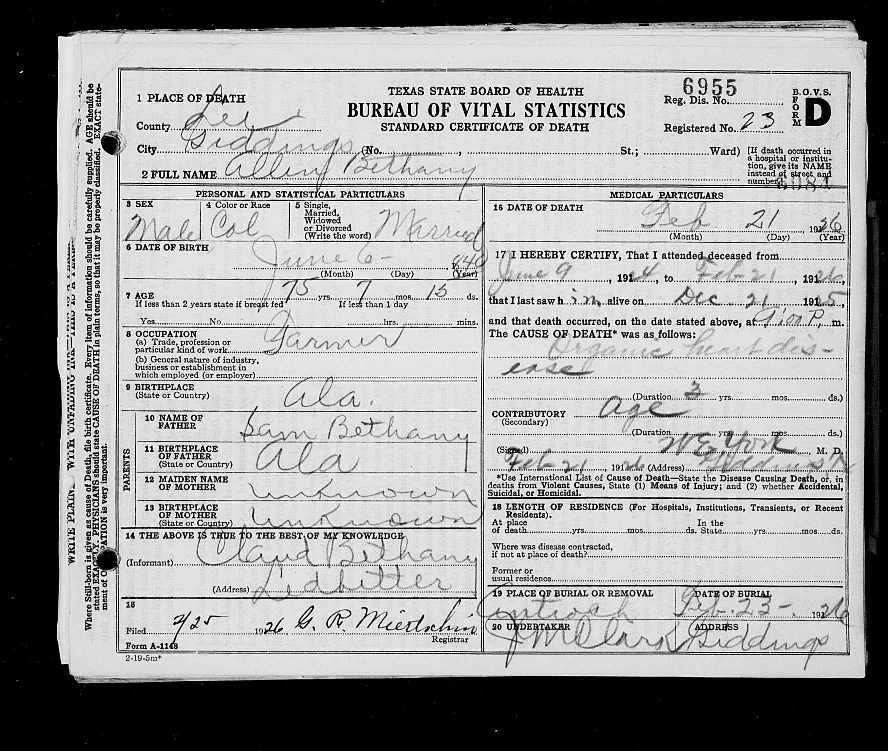 TEXAS STATE BOARD OF HEALTH
BUREAU OF VITAL STATISTICS
STANDARD CERTIFICATE OF DEATH
6955
Reg. Dis. No.
Registered No. 23
B.O.V.S.
FORM
D
1 PLACE OF DEATH
County Lee
City Giddings (No. , St.; Ward)
[If death occurred in a hospital or institution, give its NAME instead of street and number.
2 FULL NAME Allen Bethany
PERSONAL AND STATISTICAL PARTICULARS
3 SEX Male
4 Color or Race Col
5 Single, Married, Widowed or Divorced (Write the word) Married
6 DATE OF BIRTH
June 6-
(Month) (Day) (Year)
7 AGE 75 yrs. 7 mos. 15 ds.
If less than 2 years state if breast fed If less than 1 day
Yes No hrs. mins.
8 OCCUPATION
(a) Trade, profession or particular kind of work Farmer
(b) General nature of industry, business or establishment in which employed (or employer)
9 BIRTHPLACE
(State or Country) Ala.
PARENTS
10 NAME OF FATHER Sam Bethany
11 BIRTHPLACE OF FATHER (State or Country) Ala
12 MAIDEN NAME OF MOTHER unknown
13 BIRTHPLACE OF MOTHER (State or Country) unknown
14 THE ABOVE IS TRUE TO THE BEST OF MY KNOWLEDGE
(Informant) Claud Bethany
(Address) Ledbetter
15
Filed 2/25 1926 G. R. Miertschin
Registrar
Form A-1148
2-19-5m*
MEDICAL PARTICULARS
16 DATE OF DEATH
Feb 21 1926
(Month) (Day) (Year)
17 I HEREBY CERTIFY, That I attended deceased from
June 9, 1924, to Feb-21, 1926,
that I last saw him alive on Dec. 21 1925,
and that death occurred, on the date stated above, at P, m.
The CAUSE OF DEATH* was as follows:
Organic heart dis-
ease
(Duration 3 yrs. mos. ds.)
CONTRIBUTORY Age
(Secondary)
(Duration yrs. mos. ds.)
(Signed) W E York, M. D.
Feb-21, 1926 (Address) Giddings Tx
*Use International List of Cause of Death—State the Disease Causing Death, or, in
deaths from Violent Causes, State (1) Means of Injury; and (2) whether Accidental,
Suicidal, or Homicidal.
18 LENGTH OF RESIDENCE (For Hospitals, Institutions, Transients, or Recent
Residents).
At place of death yrs. mos. ds. In the State yrs. mos. ds.
Where was disease contracted,
if not at place of death?
Former or
usual residence
19 PLACE OF BURIAL OR REMOVAL DATE OF BURIAL
Antioch Feb. 23-, 1926
20 UNDERTAKER ADDRESS
J M Clark Giddings
WRITE PLAIN. WITH UNFADING INK—THIS IS A
Where Still-born is given as cause of Death, file birth certificate. Every item of information should be carefully supplied. AGE should be
stated EXACTLY. PHYSICIANS should state CAUSE OF DEATH in plain terms, so that it may be properly classified. EXACT state-
ment of OCCUPATION is very important.